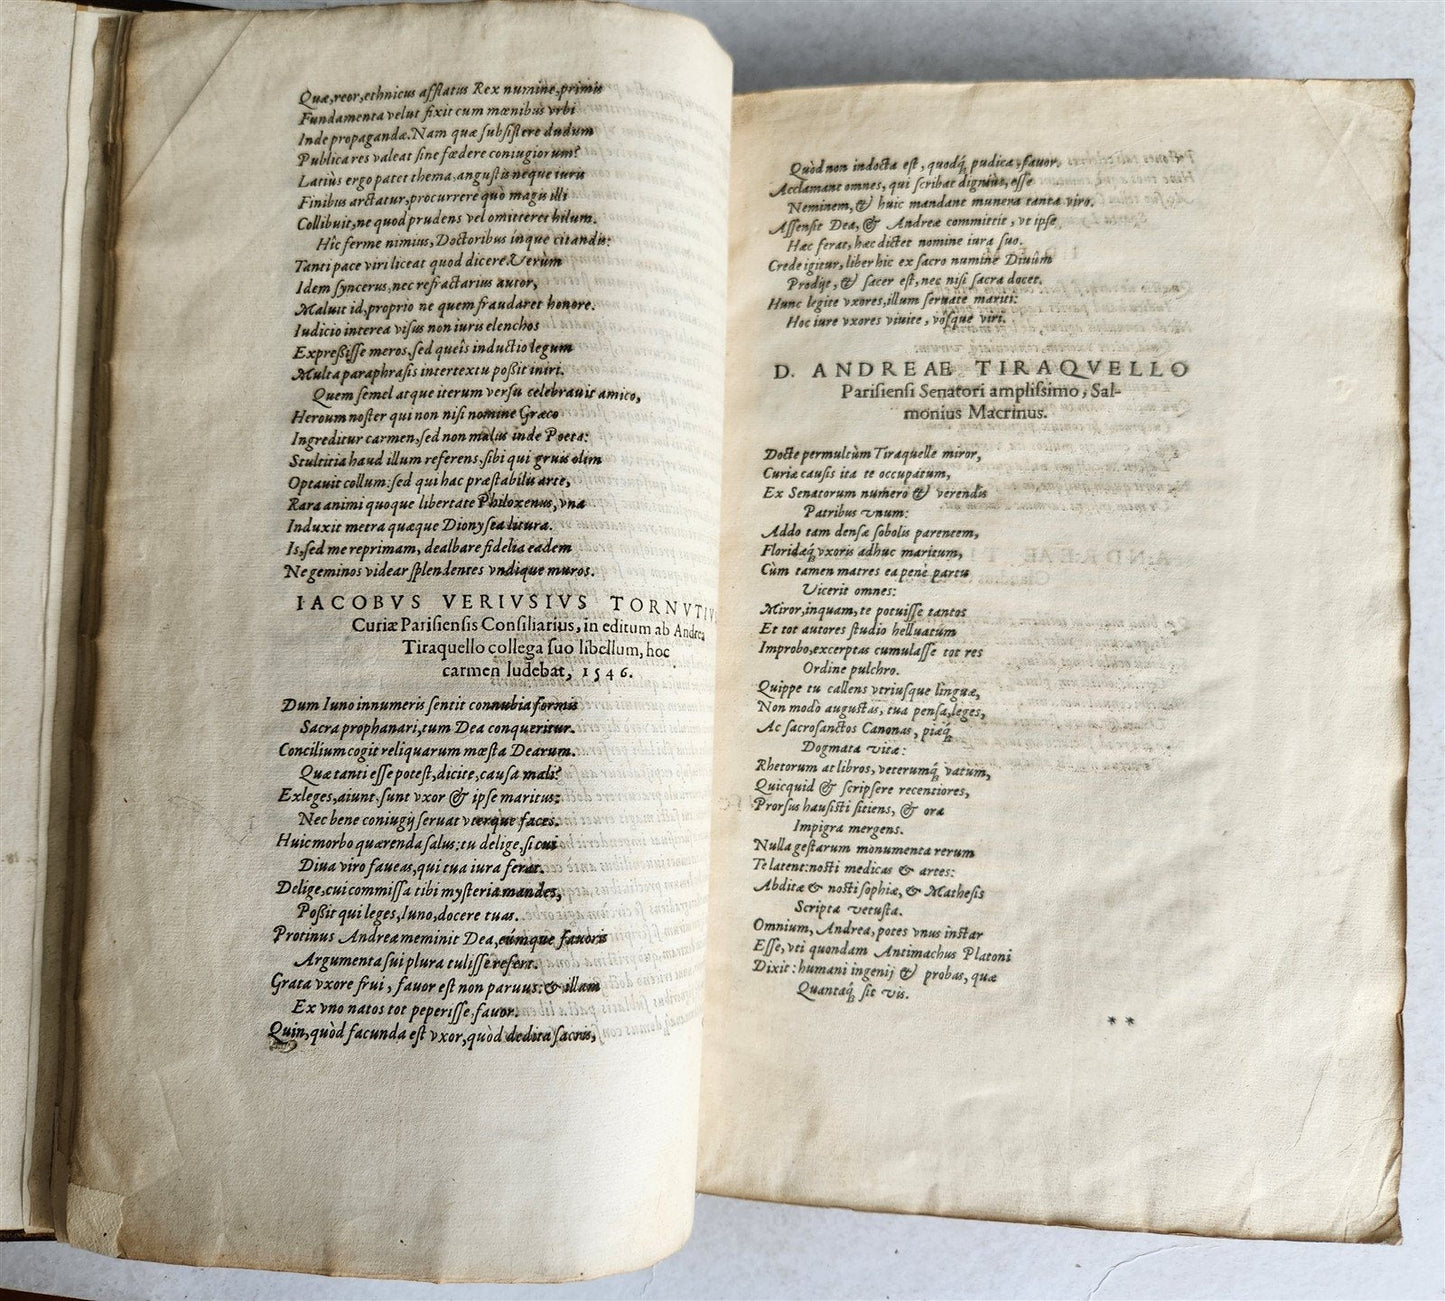 Quæ,reor,ethnicus afflatus Rex numine,primis
Fundamenta velut fixit cum mœnibus vrbi
Inde propagandæ.Nam quæ subsistere dudum
Publica res valeat sine fœdere coniugiorum?
Latiùs ergo patet thema,angustis neque iuris
Finibus arctatur,procurrere quò magis illi
Collibuit,ne quod prudens vel omitteret hilum.
Hîc ferme nimius,Doctoribus inque citandis:
Tanti pace viri liceat quod dicere.Verùm
Idem syncerus,nec refractarius autor,
Maluit id,proprio ne quem fraudaret honore.
Iudicio interea visus non iuris elenchos
Expreßisse meros,sed queîs inductio legum
Multa paraphrasis intertextu poßit iniri.
Quem semel atque iterum versu celebrauit amico,
Heroum noster qui non nisi nomine Græco
Ingreditur carmen,sed non malus inde Poeta:
Stultitia haud illum referens,sibi qui gruis olim
Optauit collum:sed qui hac præstabilis arte,
Rara animi quoque libertate Philoxenus,vna
Induxit metra quæque Dionysea litura.
Is,sed me reprimam, dealbare fidelia eadem
Ne geminos videar splendentes vndique muros.
IACOBVS VERIVSIVS TORNVTIV
Curiæ Parisiensis Consiliarius, in editum ab Andrea
Tiraquello collega suo libellum, hoc
carmen ludebat, 1546.
Dum Iuno innumeris sentit connubia formis
Sacra prophanari,tum Dea conqueritur.
Concilium cogit reliquarum mœsta Dearum.
Quæ tanti esse potest,dicite,causa mali?
Exleges,aiunt,sunt vxor & ipse maritus:
Nec bene coniugij seruat vterque faces.
Huic morbo quærenda salus:tu delige,si cui
Diua viro faueas,qui tua iura ferat.
Delige,cui commissa tibi mysteria mandes,
Poßit qui leges,Iuno,docere tuas.
Protinus Andreæ meminit Dea,eúmque fauoris
Argumenta sui plura tulisse refert.
Grata vxore frui , fauor est non paruus:& illam
Ex vno natos tot peperisse,fauor.
Quin,quòd facunda est vxor,quòd dedita sacris,
Quòd non indocta est, quodq; pudica,fauor.
Acclamant omnes, qui scribat dignius,esse
Neminem,& huic mandant munera tanta viro.
Assensit Dea, & Andreæ committit , vt ipse
Hæc ferat,hæc dictet nomine iura suo.
Crede igitur,liber hic ex sacro numine Diuûm
Prodijt, & sacer est,nec nisi sacra docet.
Hunc legite vxores,illum seruate mariti:
Hoc iure vxores viuite , vósque viri.
D. ANDREAE TIRAQVELLO
Parisiensi Senatori amplissimo, Sal-
monius Macrinus.
Docte permultùm Tiraquelle miror,
Curiæ causis ita te occupatum,
Ex Senatorum numero & verendis
Patribus vnum:
Addo tam densæ sobolis parentem,
Floridæq; vxoris adhuc maritum,
Cùm tamen matres ea penè partu
Vicerit omnes:
Miror,inquam, te potuisse tantos
Et tot autores studio helluatum
Improbo,excerptas cumulasse tot res
Ordine pulchro.
Quippe tu callens vtriusque linguæ,
Non modò augustas, tua pensa,leges,
Ac sacrosanctos Canonas, piæq;
Dogmata vitæ:
Rhetorum at libros, veterumq; vatum,
Quicquid & scripsere recentiores,
Prorsus hausisti sitiens, & ora
Impigra mergens.
Nulla gestarum monumenta rerum
Te latent:nosti medicas & artes:
Abditæ & nosti sophiæ, & Mathesis
Scripta vetusta.
Omnium, Andrea, potes vnus instar
Esse, vti quondam Antimachus Platoni
Dixit: humani ingenij & probas, quæ
Quantaq; sit vis.
**